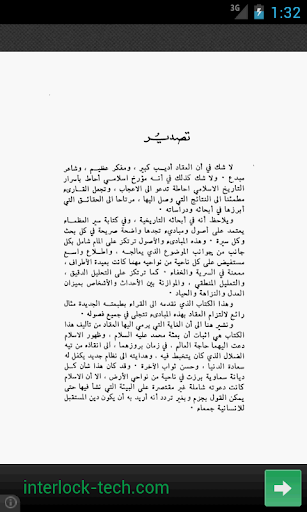 3G 1:32
تصديـر
لا شك في أن العقاد أديب كبير ، ومفكر عظيم ، وشاعر
مبدع . ولا شك كذلك في أنه مؤرخ اسلامي أحاط بأسرار
التاريخ الاسلامي احاطة تدعو الى الاعجاب ، وتجعل القارىء
مطمئنا الى النتائج التي وصل اليها ، مرتاحا الى الحقائق التي
أبرزها في أبحاثه ودراساته .
ويلاحظ أنه في أبحاثه التاريخية ، وفي كتابة سير العظماء
يعتمد على أصول ومبادىء تجدها واضحة صريحة في كل بحث
وكل سيرة . وهذه المبادىء والأصول ترتكز على المام شامل بكل
جانب من جوانب الموضوع الذي يعالجه . واطلاع واسع
مستفيض على كل ناحية من نواحيه مهما كانت بعيدة الأطراف ،
ممعنة في السرية والخفاء . كما ترتكز على التحليل الدقيق ،
والتعليل المنطقي ، والموازنة بين الأحداث والأشخاص بميزان
العدل والنزاهة والحياد .
وهذا الكتاب الذي نقدمه الى القراء بطبعته الجديدة مثال
رائع لالتزام العقاد بهذه المبادىء تتجلى في جميع فصوله .
ونشير هنا الى أن الغاية التي يرمي اليها العقاد من تأليف هذا
الكتاب هي اثبات أن بعثة محمد عليه السلام ، وظهور الاسلام
دعت اليهما حاجة العالم ، في زمان بروزهما ، الى انقاذه من تيه
الضلال الذي كان يتخبط فيه ، وهدايته الى نظام جديد يكفل له
سعادة الدنيا ، وحسن ثواب الآخرة . وقد كان هذا شأن كل
ديانة سماوية برزت في ناحية من نواحي الأرض ، الا أن الاسلام
كانت دعوته شاملة غير مقتصرة على البيئة التي نشأ فيها حتى
يمكن القول بجزم وبخير تردد أنه أريد به أن يكون دين المستقبل
للانسانية جمعاء .
interlock-tech.com